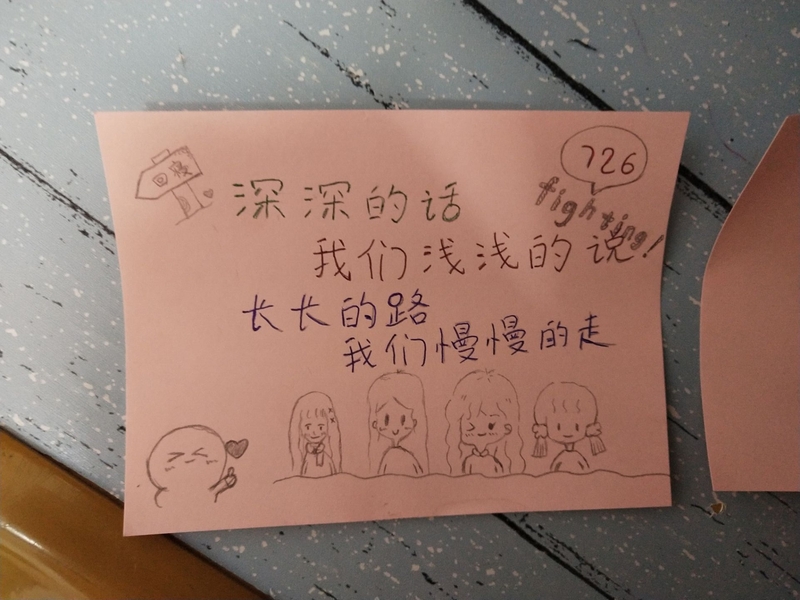 回寝
726
fighting!
深深的话
我们浅浅的说
长长的路
我们慢慢的走